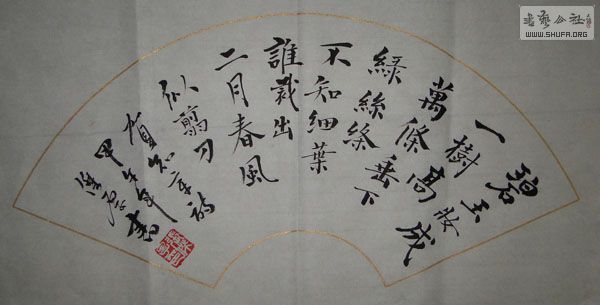 碧玉妝成
一樹高
萬條垂下
綠絲絛
不知細葉
誰裁出
二月春風
似剪刀
賀知章詩
甲午年
書
書藝公社
WWW.SHUFA.ORG